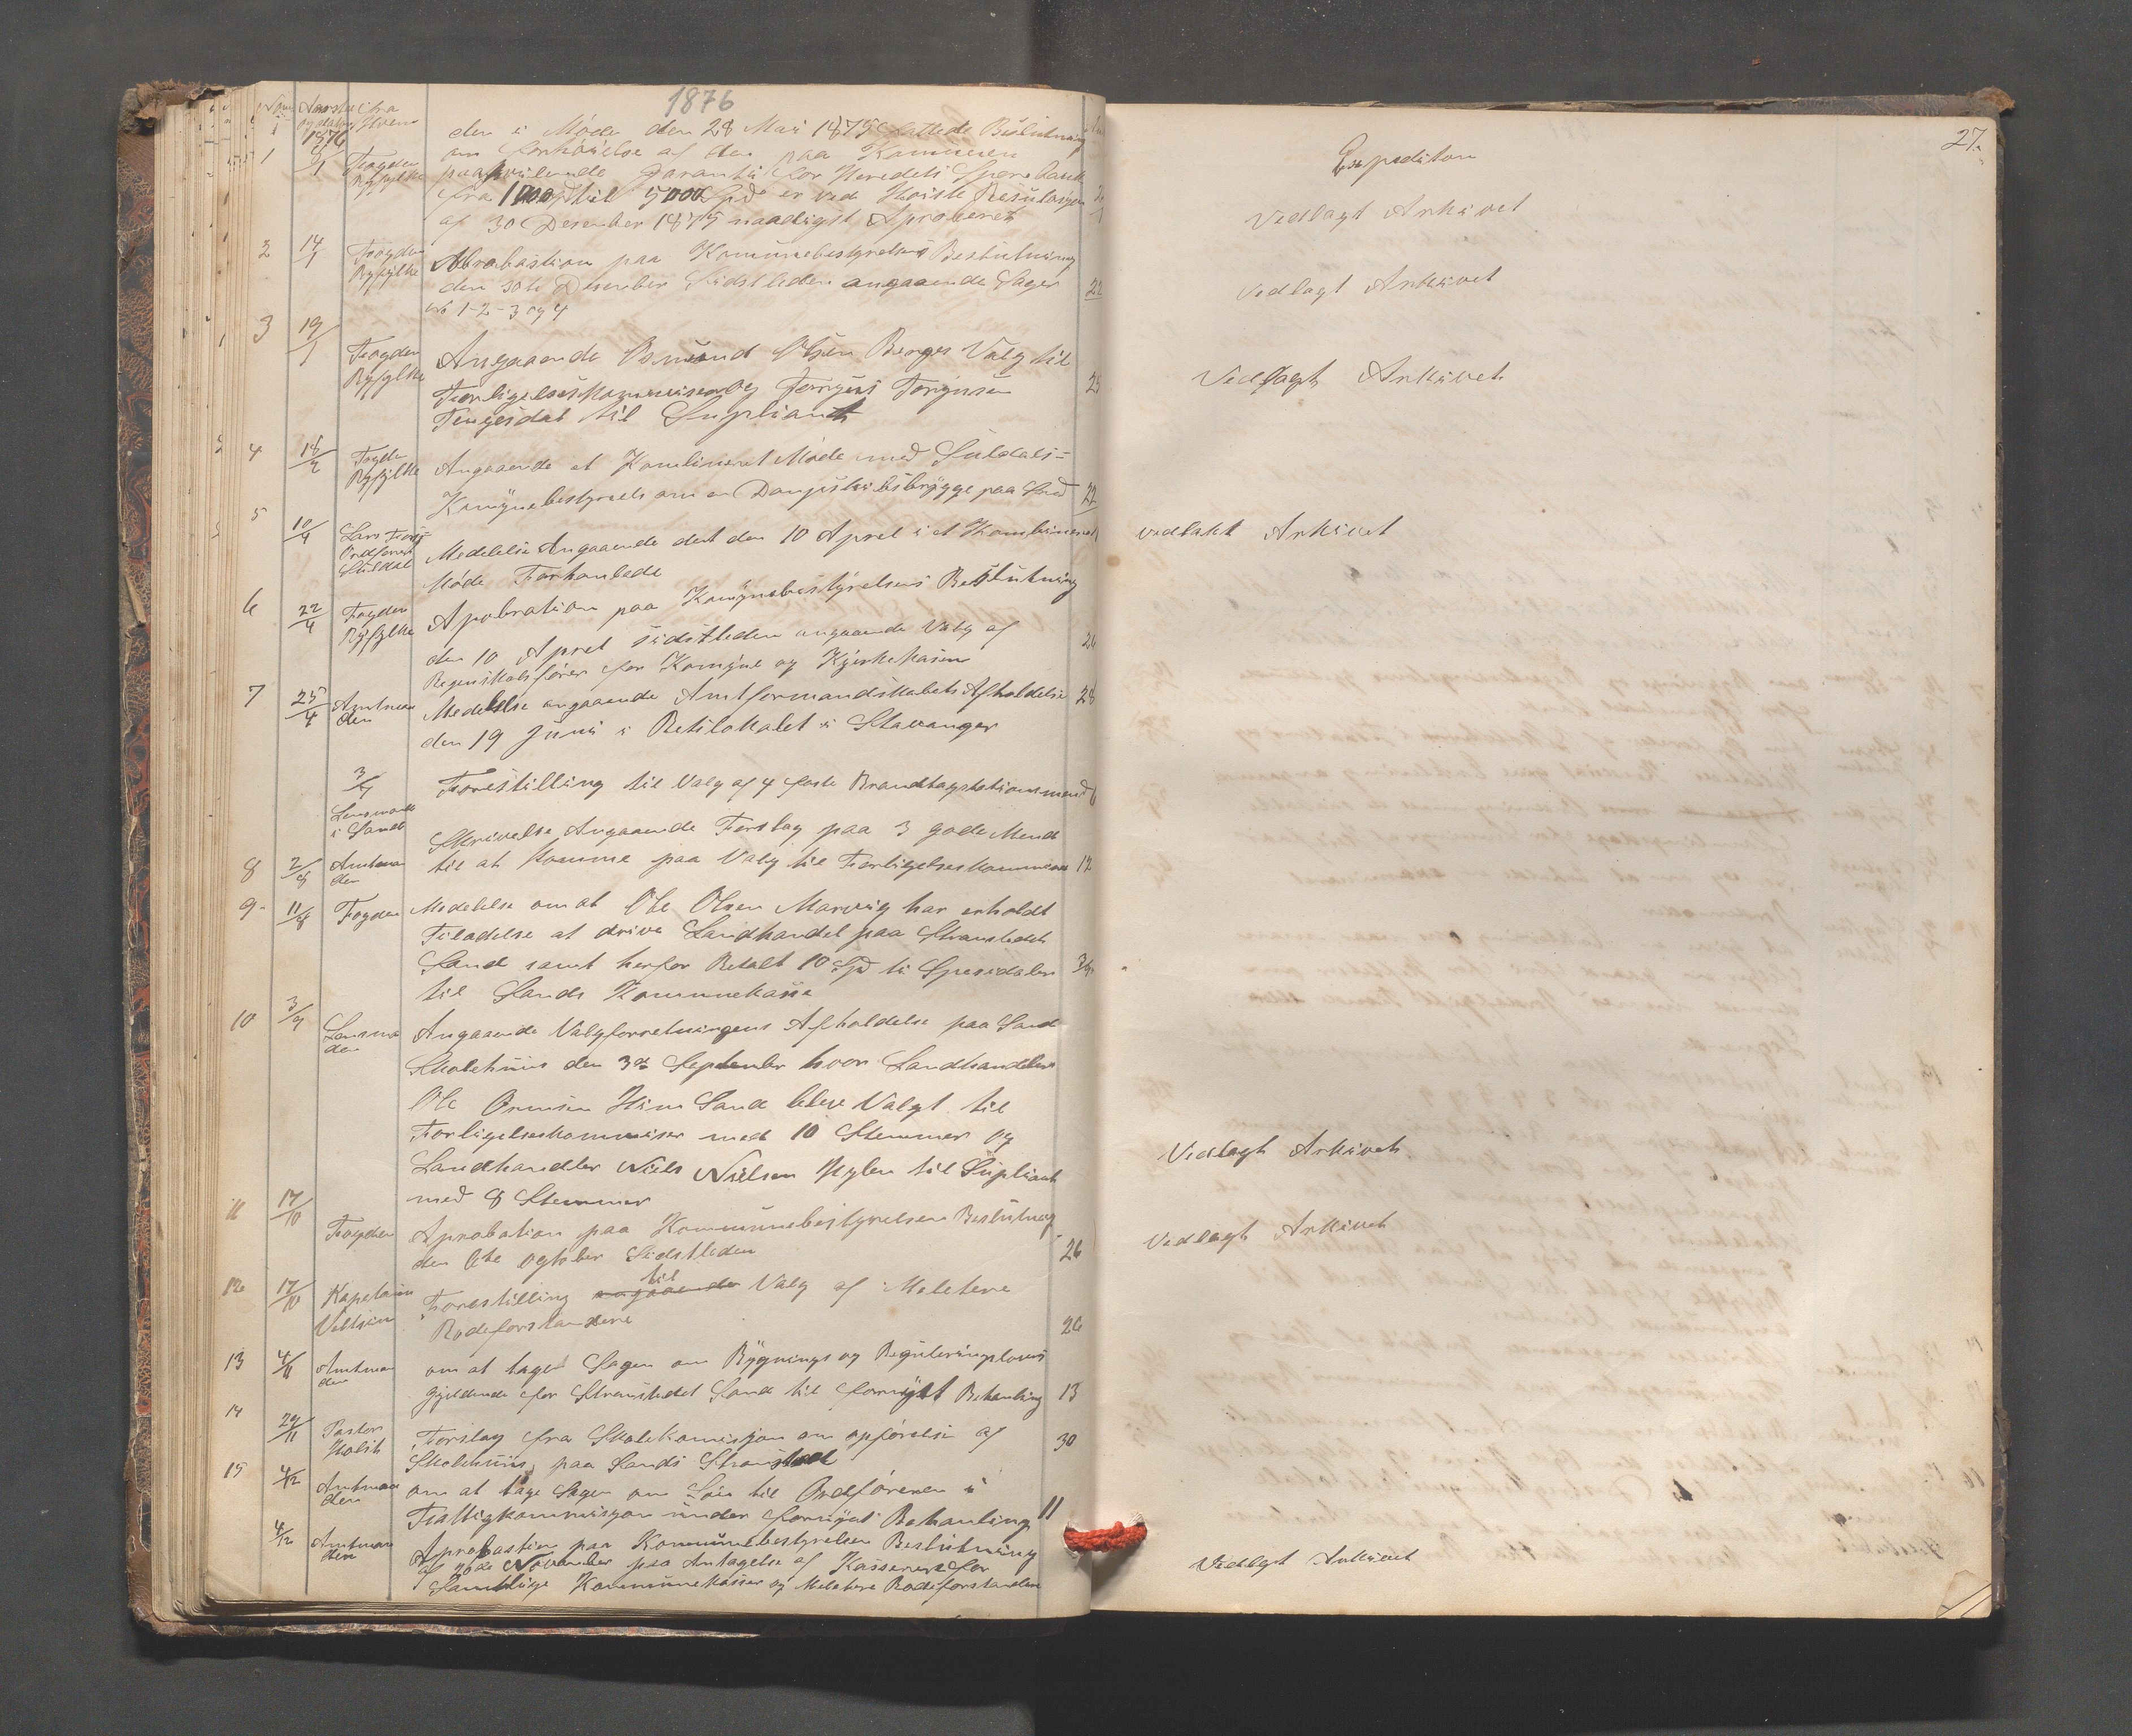 1876
Aarstal og datum ifra Hvem
1876
den i Møde den 28 Mai 1875 fattede Beslutning
1 Fogden Ryfylke om forhøielse af den paa Komunen
paahvilende Garanti for Heredets Sparebank
fra 1000 Spd til 5000 Spd er ved Høiste Resulusjon
af 30 Desember 1875 naadigst Aproberet
2 14/1 Fogden Ryfylke Abrobastion paa Komunebestyrelsens Beslutning
den 30te Desember Sidstleden angaaende Sager 22
No 1-2-3 og 4
3 19/1 Fogden Ryfylke Angaaende Osmund Olsen Berges Valg til
Forligelseskommiser og Torgeus Torgeusen 25
Tengesdal til Supliant
4 18/2 Fogden Ryfylke Angaaende et Kombineret Møde med Suldals-
Komynebestyrels om en Dampskibsbrygge paa Sand 22
5 10/4 Lars Ordfører Suldal Medelelse Angaaende det den 10 Aprel i et Kombineret
Møde Forhanlede
6 22/4 Fogden Ryfylke Apobration paa Komynebestyrelsens Beslutning
den 10 Aprel sidstleden angaaende Valg af 24
Regenskabsfører for Komyne og Kyrkekasen
7 25/4 Amtmanden Medelelse angaaende Amtformandskabets Afholdelse 28
den 19 Juni i Retslokalet i Stavanger
3/7 Lensmand i Sand Forestilling til Valg af 4 faste Brandtagstationsmænd
Skrivelse Angaaende Forslag paa 3 gode Mend
8 2/8 Amtmanden til at komme paa Valg til Forligelseskommisær 12
9 11/8 Fogden Medelelse om at Ole Olsen Marvig har erholdt
Tiladelse at drive Landhandel paa Stranstedet
Sand samt herfor Betalt 10 Spd ti Spesidaler
til Sands Kommunekasse
10 3/9 Lensmanden Angaaende Valgforretningens Afholdelse paa Sand
Skolehuus den 3de September hvor Landhandler
Ole Osmsen Hiim Sand bleve Valgt til
Forligelseskommiser med 10 Stemmer og
Landhandler Niels Nielsen Hylen til Supliant
med 8 Stemmer
11 17/10 Fogden Aprobation paa Kommunebestyrelsens Beslutning
den 6te Ogtober Sidstleden 26
12 17/10 Kapetain Forestilling angaaende til Valg af Meletere
Rodeforstandere 26
13 4/11 Amtmanden om at tage Sagen om Bygnings og Reguleringslovens
gjeldende for Stranstedet Sand til fornyet Behanling 13
14 29/11 Pastor Forslag fra Skolekomisjon om opførelse af
Skolehuus paa Sands Stransted 30
15 4/12 Amtmanden om at tage Sagen om Løn til Ordføreren i
Fattigkommisjon under fornyet Behanling 11
4/12 Amtmanden Aprobastion paa Kommunebestyrelsen Beslutning
af November paa Antagelse af Kasserere for
Samtlige Kommunekasser og Meletere Rodeforstander
27.
Expedition
Vedlagt Arkivet
Vedlagt Arkivet
Vedlagt Arkivet
Vedlakt Arkivet
Vedlagt Arkivet
Vedlagt Arkivet
Vedlagt Arkivet